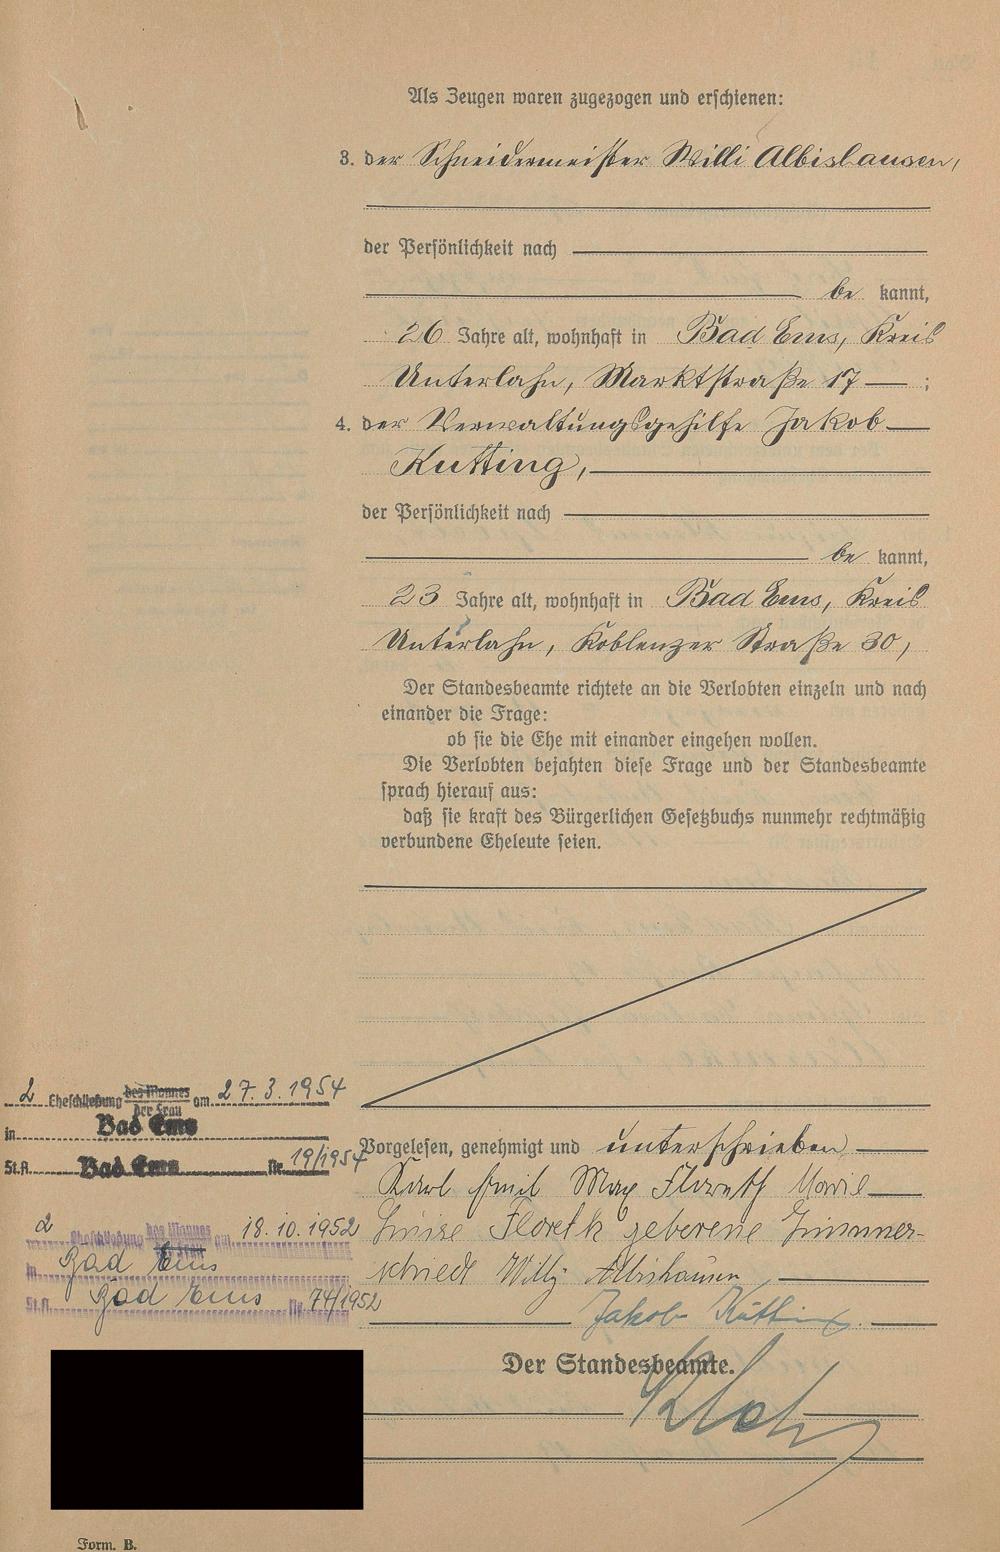 Als Zeugen waren zugezogen und erschienen:
3. der Schneidermeister Willi Albishausen,
der Persönlichkeit nach
be kannt,
26 Jahre alt, wohnhaft in Bad Ems, Kreis
Unterlahn, Marktstraße 17 ;
4. der Verwaltungsgehilfe Jakob
Kutting,
der Persönlichkeit nach
be kannt,
23 Jahre alt, wohnhaft in Bad Ems, Kreis
Unterlahn, Koblenzer Straße 30,
Der Standesbeamte richtete an die Verlobten einzeln und nach
einander die Frage:
ob sie die Ehe mit einander eingehen wollen.
Die Verlobten bejahten diese Frage und der Standesbeamte
sprach hierauf aus:
daß sie kraft des Bürgerlichen Gesetzbuchs nunmehr rechtmäßig
verbundene Eheleute seien.
2 Eheschließung des Mannes der Frau am 27.3.1954
in Bad Ems
St.A. Bad Ems Nr. 19/1954
Vorgelesen, genehmigt und unterschrieben
Karl Emil Max Floreth Marie
Luise Floreth geborene Zimmer-
schied Willy Albishausen
Jakob Kutting
2 Eheschließung des Mannes der Frau am 18.10.1952
in Bad Ems
St.A. Bad Ems Nr. 74/1952
Der Standesbeamte.
Form. B.